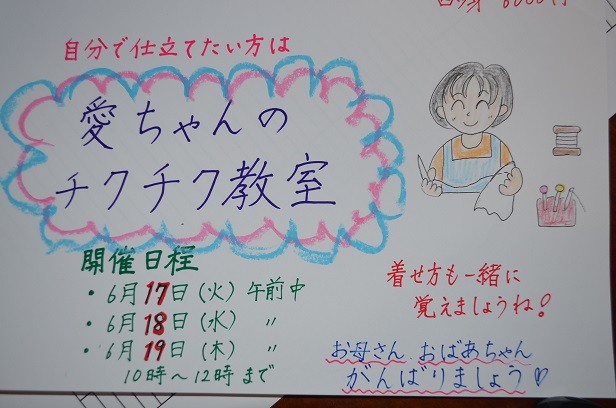 自分で仕立てたい方は
愛ちゃんの
チクチク教室
開催日程
・6月17日(火)午前中
・6月18日(水) 〃
・6月19日(木) 〃
10時～12時まで
着せ方も一緒に
覚えましょうね!
お母さん、おばあちゃん
がんばりましょう♡